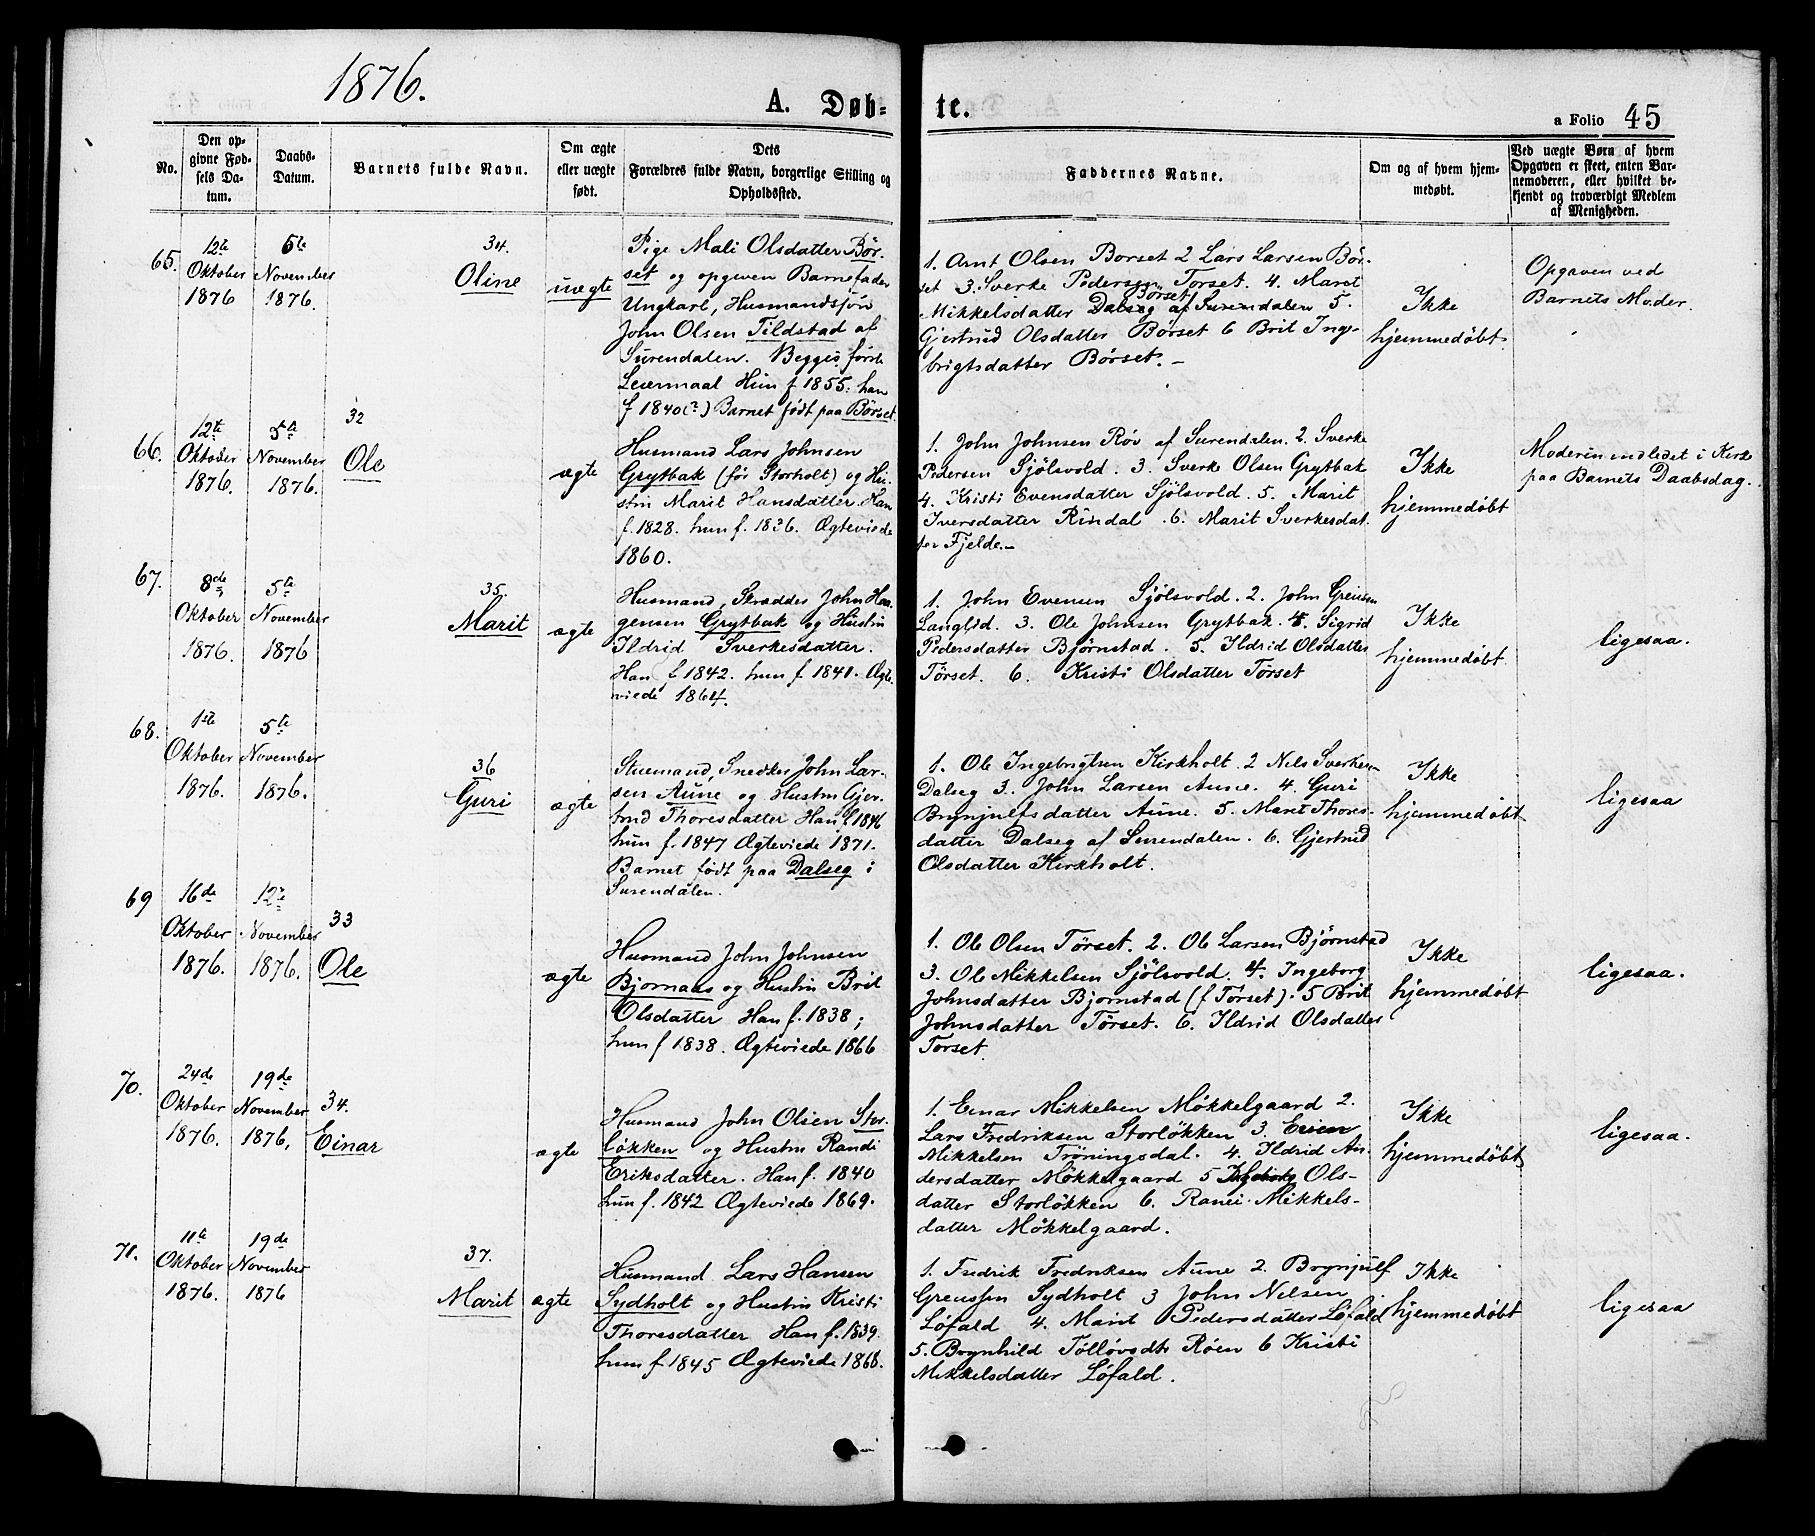 1876.
A. Døb-
te.
a Folio 45
No.
Den op-
givne Fød-
sels Da-
tum.
Daabs-
Datum.
Barnets fulde Navn.
Om ægte
eller uægte
født.
Dets
Forældres fulde Navn, borgerlige Stilling og
Opholdssted.
Faddernes Navne.
Om og af hvem hjem-
medøbt.
Ved uægte Børn af hvem
Opgaven er skeet, enten Bar-
nemoderen, eller hvilket be-
kjendt og troværdigt Medlem
af Menigheden.
65.
12te
Oktober
1876
5te
November
1876.
34.
Oline
uægte
Pige Mali Olsdatter Bør-
set og opgiven Barnefader
Ungkarl, Husmandssøn
John Olsen Tildstad af
Surendalen. Begges første
Leiermaal Hun f 1855. han
f 1840(?) Barnet født paa Børset.
1. Arnt Olsen Borset 2 Lars Larsen Bør-
set 3. Sverke Pedersen Torset. 4. Maret
Mikkelsdatter Dalseg af Surendalen 5.
Børset
Gjertrud Olsdatter Børset 6 Brit Ing-
brigtsdatter Børset. -
Ikke
hjemmedøbt.
Opgaven ved
Barnets Moder.
66.
12te
Oktober
1876.
5te
November
1876.
32
Ole
ægte
Husmand Lars Johnsen
Grytbak (før Storholt) og Hu-
stru Marit Hansdatter. Han
f. 1828. hun f. 1836. Ægteviede
1860.
1. John Johnsen Røv af Surendalen. 2. Sverke
Pedersen Sjölsvold. 3. Sverke Olsen Grytbak
4. Kristi Evensdatter Sjölsvold. 5. Marit
Iversdatter Rindal. 6. Marit Sverkesdat-
ter Fjelde. -
Ikke
hjemmedøbt
Moderen indledet i Kirke
paa Barnets Daabsdag.
67.
8de
Oktober
1876.
5te
November
1876
35.
Marit
ægte
Husmand, Skrædder John Haa-
gensen Grytbak og Hustru
Ildrid Sverkesdatter.
Han f. 1842. hun f. 1841. Ægte-
viede 1864.
1. John Evensen Sjölsvold. 2. John Grensen
Langlid. 3. Ole Johnsen Grytbak. 4. Sigrid
Pedersdatter Bjørnstad. 5. Ildrid Olsdatter
Tørset. 6. Kristi Olsdatter Torset
Ikke
hjemmedøbt
ligesaa.
68.
1ste
Oktober
1876.
5te
November
1876.
36
Guri
ægte
Stuemand, Snedker John Lar-
sen Aune og Hustru Gjer-
trud Thoresdatter Han f. 1846
hun f. 1847 Ægteviede 1871.
Barnet født paa Dalseg i
Surendalen.
1. Ole Ingebrigtsen Kirkholt. 2 Nils Sverkesen
Dalseg 3. John Larsen Aune. 4. Guri
Brynjulfsdatter Aune. 5. Maret Thores-
datter Dalseg af Surendalen. 6. Gjertrud
Olsdatter Kirkholt.
Ikke
hjemmedøbt
ligesaa
69
16de
Oktober
1876.
12te
November
1876.
33
Ole
ægte
Husmand John Johnsen
Bjornaas og Hustru Brit
Olsdatter Han f. 1838;
hun f 1838. Ægteviede 1866
1. Ole Olsen Tørset. 2. Ole Larsen Bjørnstad
3. Ole Mikkelsen Sjölsvold. 4. Ingeborg
Johnsdatter Bjornstad (f Tørset). 5 Brit
Johnsdatter Tørset. 6. Ildrid Olsdatter
Torset.
Ikke
hjemmedøbt
ligesaa.
70.
24de
Oktober
1876.
19de
November
1876.
34.
Einar
ægte
Husmand John Olsen Stor-
løkken og Hustru Randi
Eriksdatter. Han f. 1840
hun f. 1842 Ægteviede 1869.
1. Einar Mikkelsen Møkkelgaard 2.
Lars Fredriksen Storløkken 3
Mikkelsen Tröningsdal. 4. Ildrid An-
dersdatter Møkkelgaard 5 Ingeborg Ols-
datter Storløkken 6. Ranei Mikkels-
datter Møkkelgaard.
Ikke
hjemmedøbt
ligesaa.
71.
11te
Oktober
1876.
19de
November
1876
37.
Marit
ægte
Husmand Lars Hansen
Sydholt og Hustru Kristi
Thoresdatter Han f. 1839.
hun f. 1845 Ægteviede 1868.
1. Fredrik Fredriksen Aune 2 Brynjulf
Grenssen Sydholt 3 John Nelsen
Løfald 4. Marit Pedersdatter Løfald
5. Brynhild Tøllovsdtr Røen 6 Kristi
Mikkelsdatter Løfald.
Ikke
hjemmedøbt
ligesaa